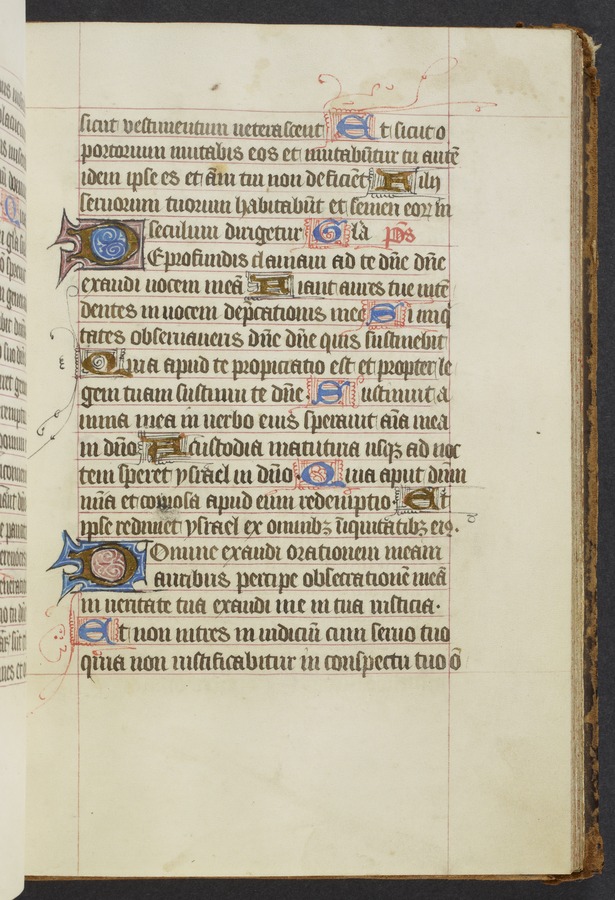 sicut vestimentum ueterascent Et sicut o
portorium mutabis eos et mutabūtur tu autē
idem ipse es et āni tui non deficiēt Filij
seruorum tuorum habitabūt et semen eorū in
seculum dirigetur Glā p̄s
De profundis clamaui ad te dn̄e dn̄e
exaudi uocem meā Fiant aures tue intē
dentes in uocem dep̄cationis mee Si iniq̄
tates obseruaueris dn̄e dn̄e quis sustinebit
Quia apud te propiciatio est et propter le
gem tuam sustinui te dn̄e Sustinuit a
nima mea in uerbo eius sperauit aīa mea
in dn̄o A custodia matutina usqꝫ ad noc
tem speret ysrael in dn̄o Quia aput dn̄m
mīa et copiosa apud eum redemptio Et
ipse redimet ysrael ex omnibꝫ īiquitatibꝫ eiꝰ.
Domine exaudi orationem meam
auribus percipe obsecrationē meā
in ueritate tua exaudi me in tua iusticia.
Et non intres in iudiciū cum seruo tuo
quia non iustificabitur in conspectu tuo ō